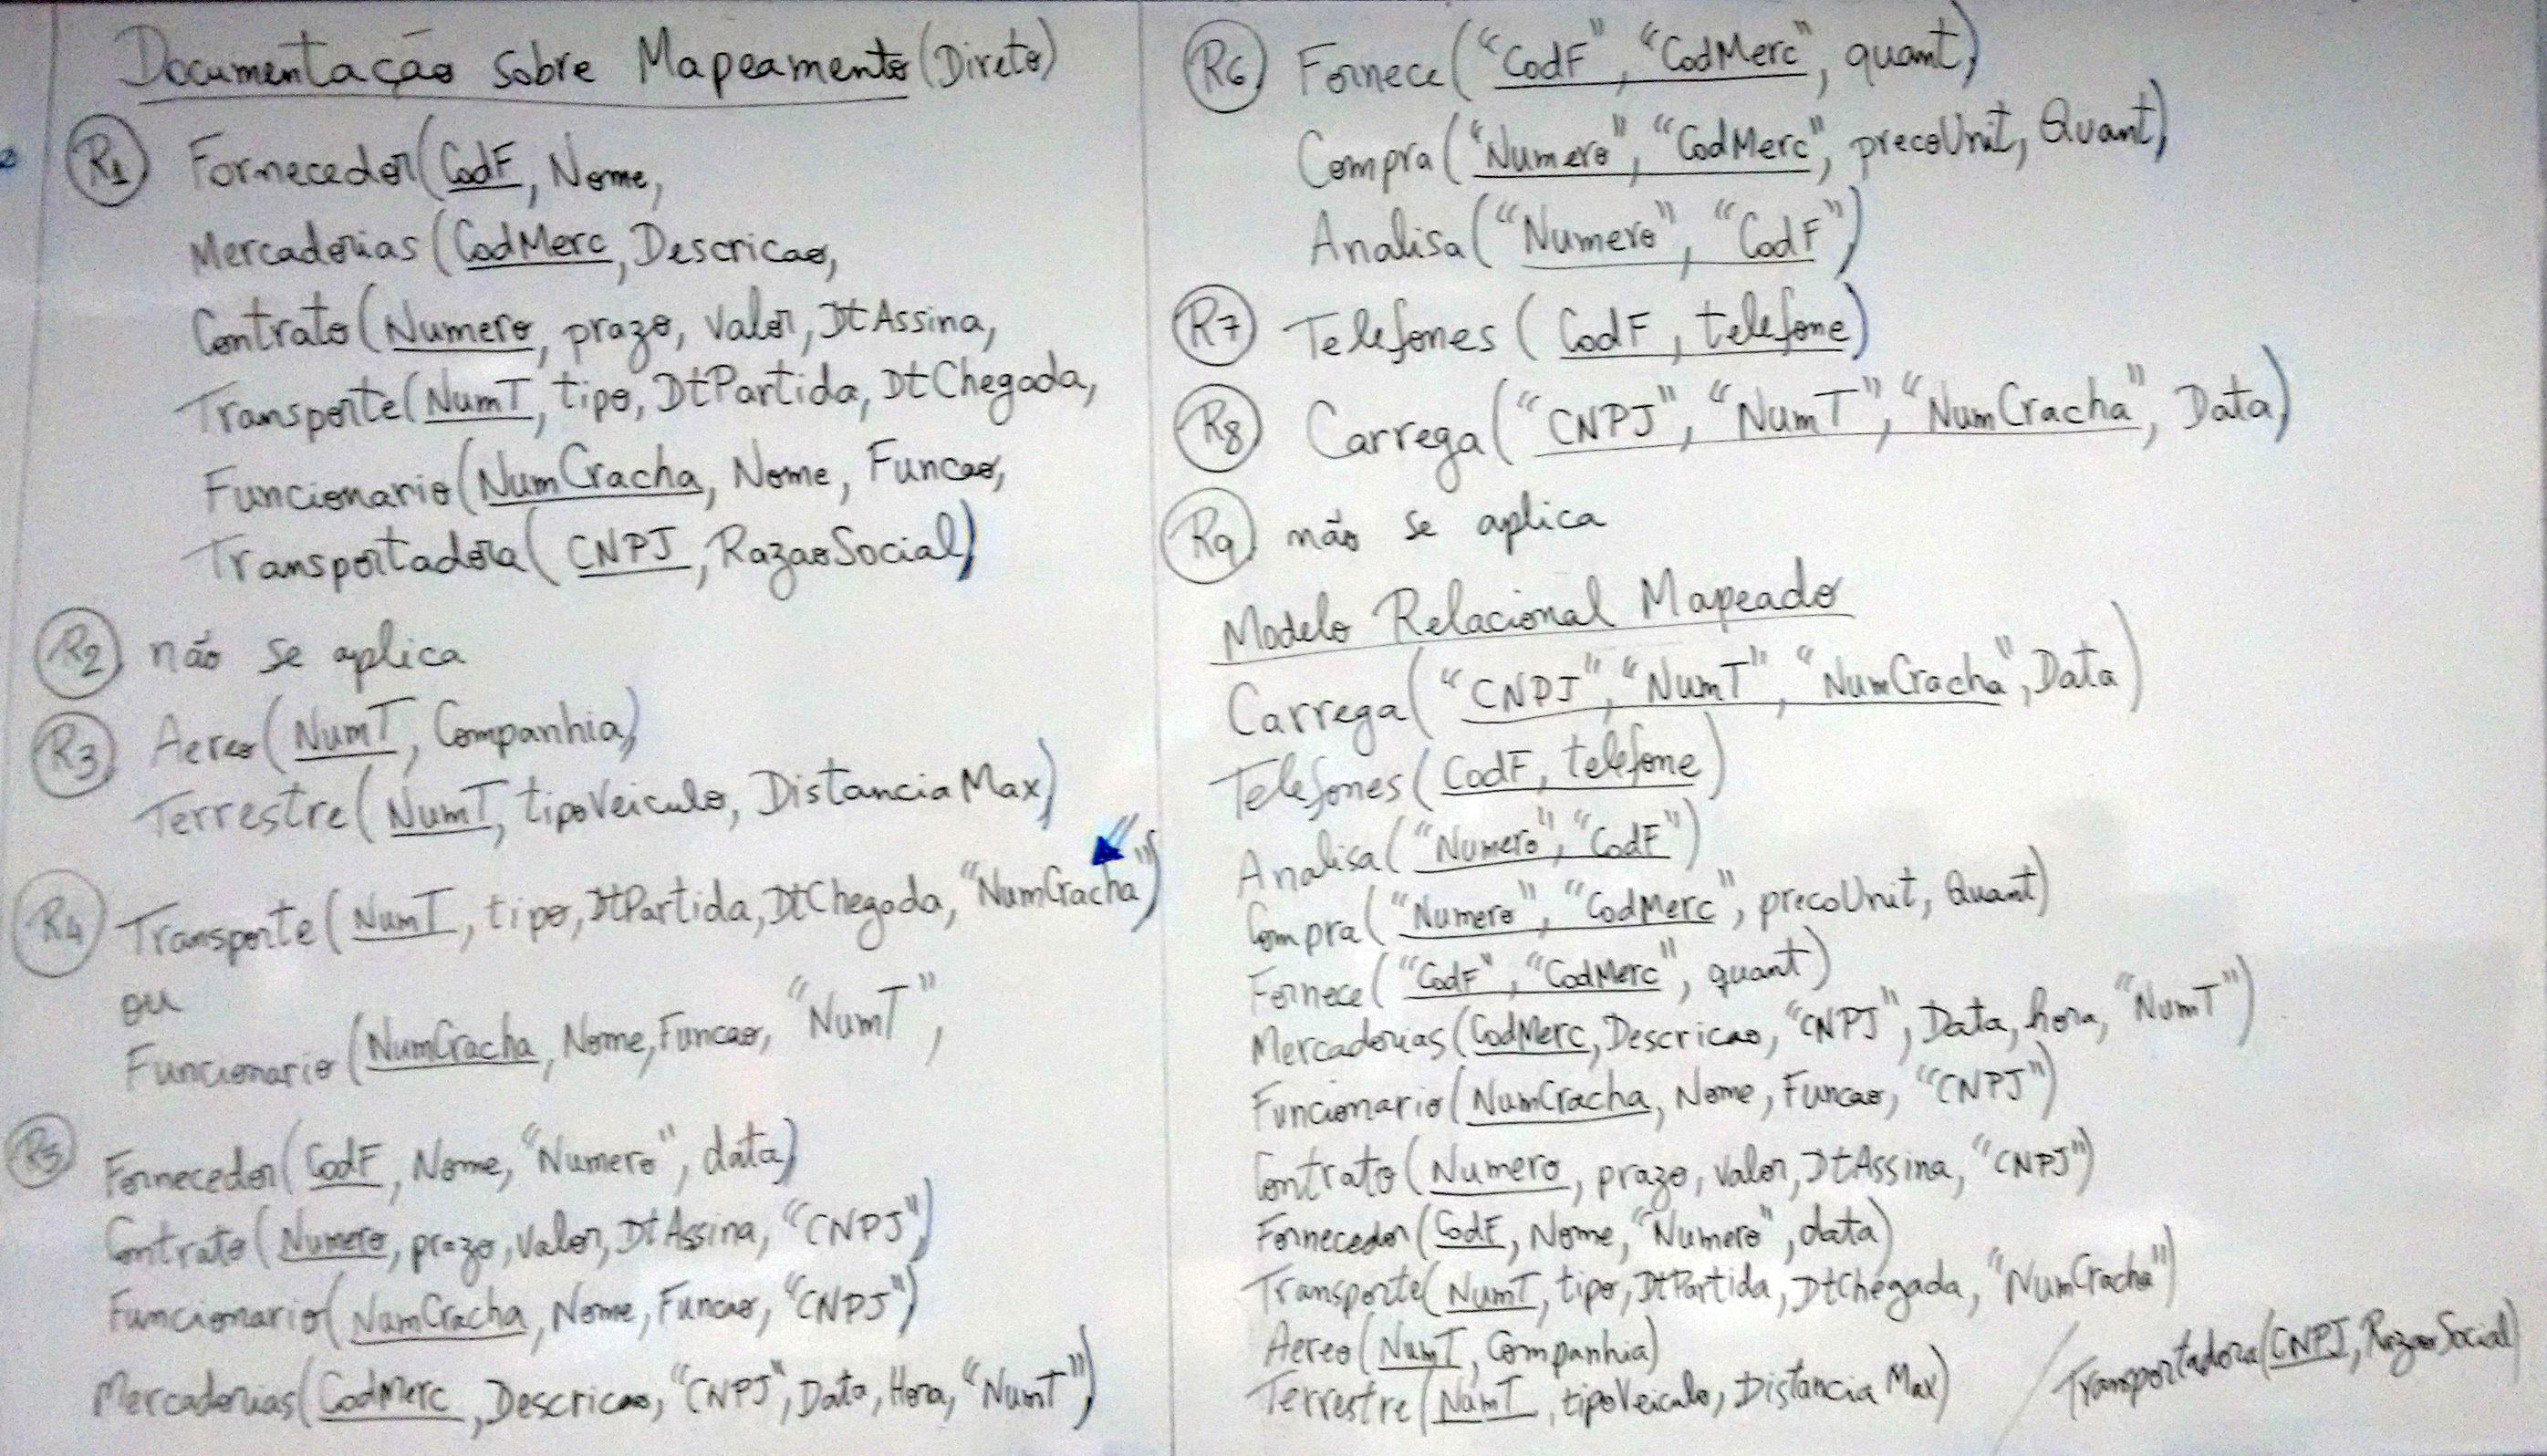 Documentação sobre Mapeamento (Direto)
R1 Fornecedor(CodF, Nome,
Mercadorias (CodMerc, Descricao,
Contrato (Numero, prazo, Valor, DtAssina,
Transporte(NumT, tipo, DtPartida, DtChegada,
Funcionario(NumCracha, Nome, Funcao,
Transportadora( CNPJ, RazaoSocial)
R2 não se aplica
R3 Aereo(NumT, Companhia)
Terrestre(NumT, tipoVeiculo, DistanciaMax)
R4 Transporte(NumT, tipo, DtPartida, DtChegada, "NumCracha")
ou
Funcionario(NumCracha, Nome, Funcao, "NumT",
R5 Fornecedor(CodF, Nome, "Numero", data)
Contrato(Numero, prazo, Valor, DtAssina, "CNPJ")
Funcionario(NumCracha, Nome, Funcao, "CNPJ")
Mercadorias(CodMerc, Descricao, "CNPJ", Data, Hora, "NumT")
R6 Fornece("CodF", "CodMerc", quant)
Compra("Numero", "CodMerc", precoUnit, Quant)
Analisa("Numero", "CodF")
R7 Telefones (CodF, telefone)
R8 Carrega("CNPJ", "NumT", "NumCracha", Data)
R9 não se aplica
Modelo Relacional Mapeado
Carrega("CNPJ", "NumT", "NumCracha", Data)
Telefones(CodF, telefone)
Analisa("Numero", "CodF")
Compra("Numero", "CodMerc", precoUnit, Quant)
Fornece("CodF", "CodMerc", quant)
Mercadorias(CodMerc, Descricao, "CNPJ", Data, hora, "NumT")
Funcionario(NumCracha, Nome, Funcao, "CNPJ")
Contrato(Numero, prazo, Valor, DtAssina, "CNPJ")
Fornecedor(CodF, Nome, "Numero", data)
Transporte(NumT, tipo, DtPartida, DtChegada, "NumCracha")
Aereo(NumT, Companhia)
Terrestre(NumT, tipoVeiculo, DistanciaMax) / Transportadora(CNPJ, RazaoSocial)